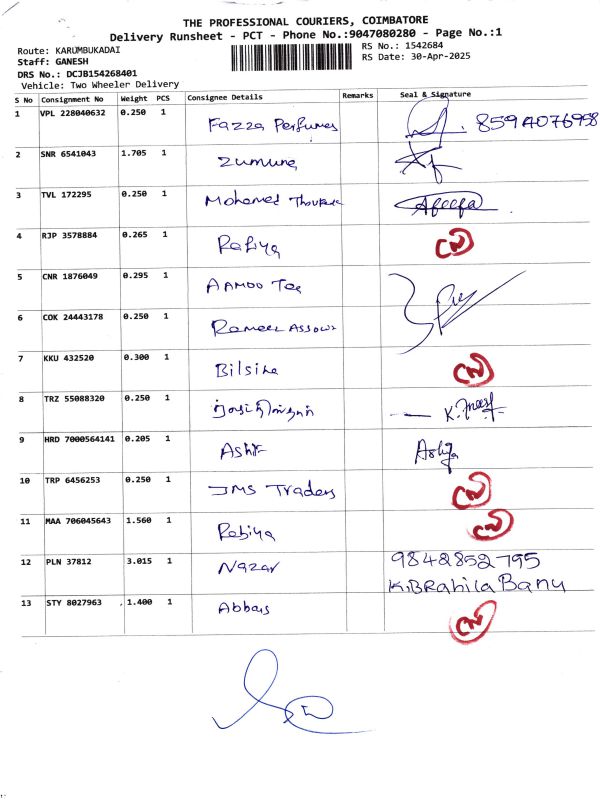 THE PROFESSIONAL COURIERS, COIMBATORE
Delivery Runsheet - PCT - Phone No.:9047080280 - Page No.:1
Route: KARUMBUKADAI
RS No.: 1542684
Staff: GANESH
RS Date: 30-Apr-2025
DRS No.: DCJB154268401
Vehicle: Two Wheeler Delivery
S No Consignment No Weight PCS Consignee Details Remarks Seal & Signature
1 VPL 228040632 0.250 1 Fazza Perfumes 8594076958
2 SNR 6541043 1.705 1 Zumuna
3 TVL 172295 0.250 1 Mohamed Afeefa
4 RJP 3578884 0.265 1 Rabiya
5 CNR 1876049 0.295 1 AAMOO Tea
6 COK 24443178 0.250 1 Rameez
7 KKU 432520 0.300 1 Bilsiha
8 TRZ 55088320 0.250 1
9 HRD 7000564141 0.205 1 Ashif
10 TRP 6456253 0.250 1 JMS Traders
11 MAA 706045643 1.560 1 Rabiya
12 PLN 37812 3.015 1 Nazar 9842852795
K.BRahila Banu
13 STY 8027963 1.400 1 Abbas